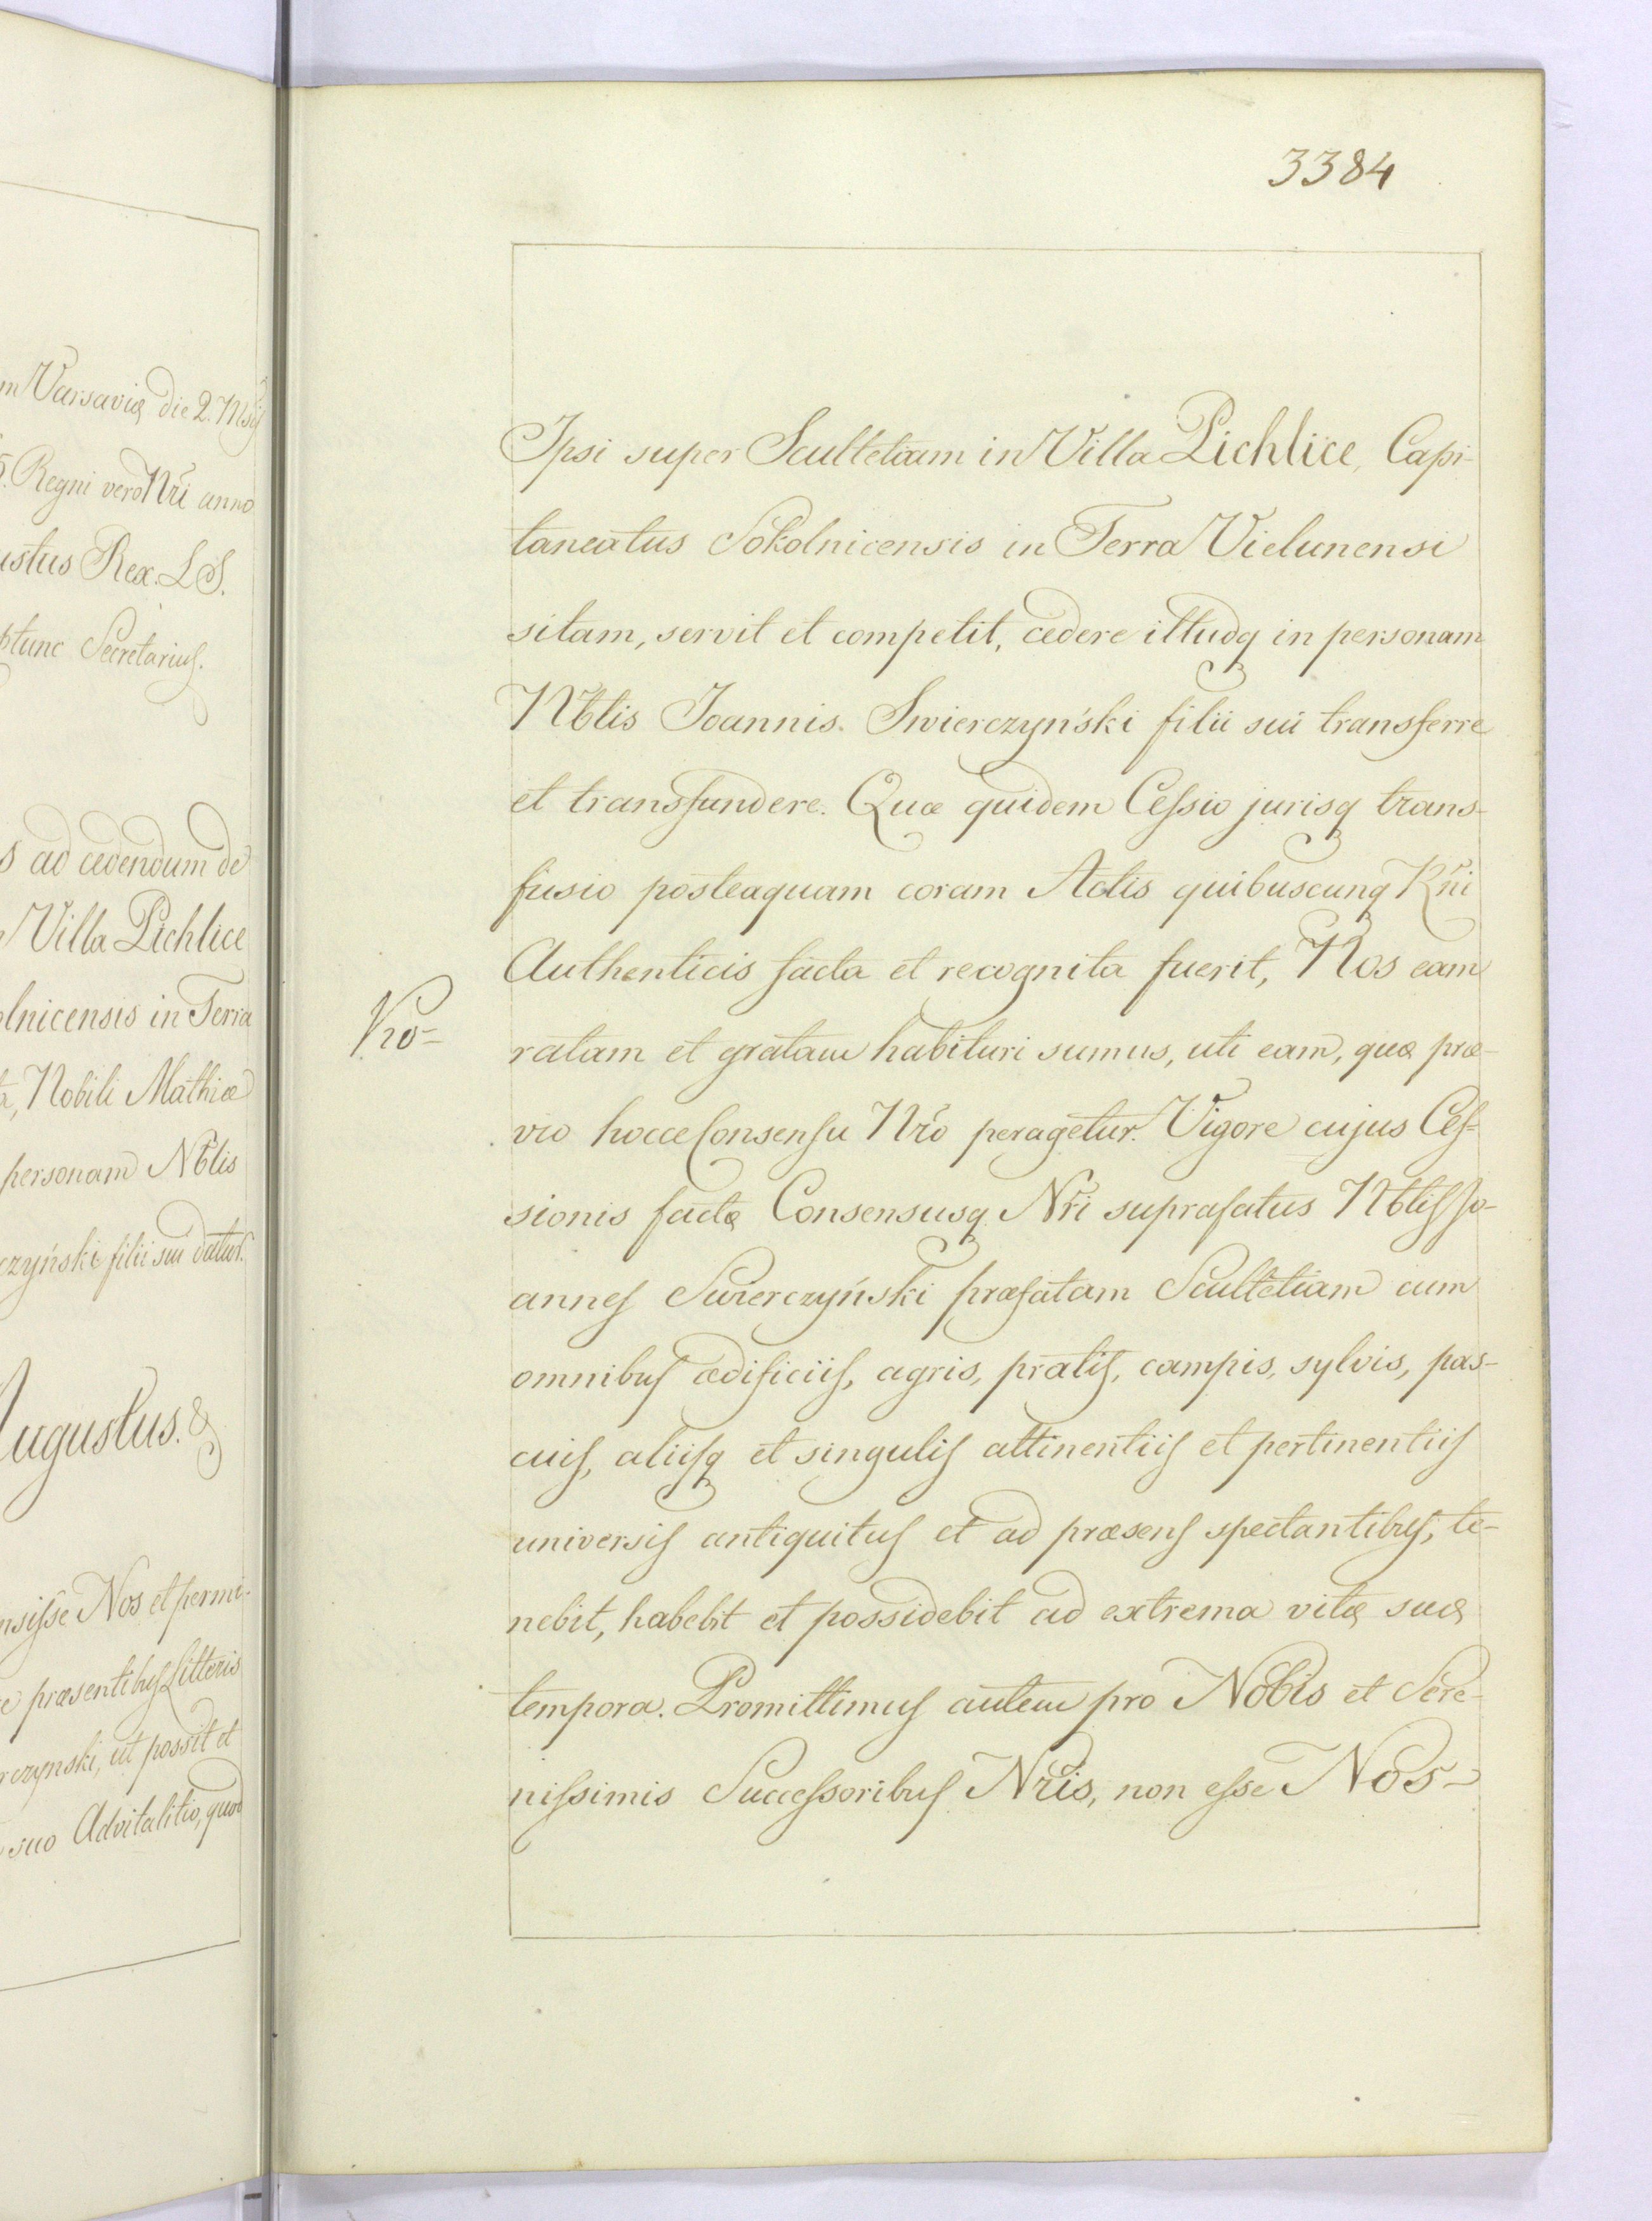 m Varsaviæ die 2. Msis
5. Regni vero Nri anno
ustus Rex. LS.
ptunc Secretarius.
s ad cedendum de
Villa Pichlice
olnicensis in Terra
a, Nobili Mathiæ
personam Nblis
czyński filii sui datur.
Augustus. &
nsisse Nos et permi-
e præsentibus Litteris
rczynski, ut possit et
suo Advitalitio, quod
3384
Ipsi super Scultetiam in Villa Pichlice, Capi-
taneatus Sokolnicensis in Terra Vielunensi
sitam, servit et competit, cedere illudq in personam
Nblis Joannis Swierczyński filii sui transferre
et transfundere. Quæ quidem Cessio jurisq trans-
fusio posteaquam coram Actis quibuscunq Rni
Authenticis facta et recognita fuerit, Nos eam
ratam et gratam habituri sumus, uti eam, quæ præ-
vio hocce Consensu Nro peragetur. Vigore cujus Ces-
sionis factæ Consensusq Nri suprafatus Nblis Jo-
annes Swierczyński præfatam Scultetiam cum
omnibus ædificiis, agris, pratis, campis, sylvis, pas-
cuis, aliisq et singulis attinentiis et pertinentiis
universis antiquitus et ad præsens spectantibus, te-
nebit, habebit et possidebit ad extrema vitæ suæ
tempora. Promittimus autem pro Nobis et Sere-
nissimis Successoribus Nris, non esse Nos